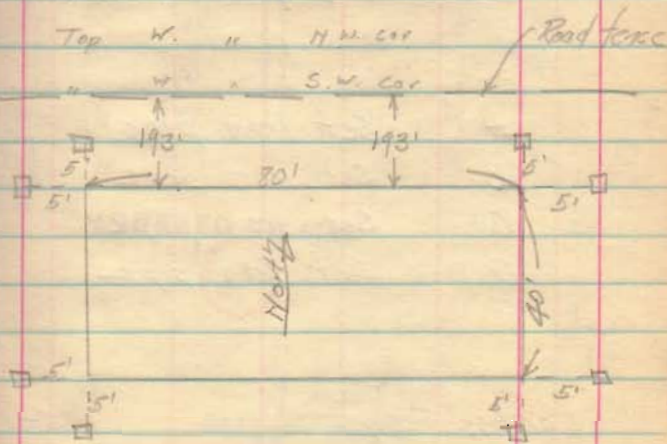 Top W. " N.W. cor
Road fence
" W " S.W. cor
193' 193'
5' 5'
80'
5' 5'
North
40'
5' 5'
5' 5'